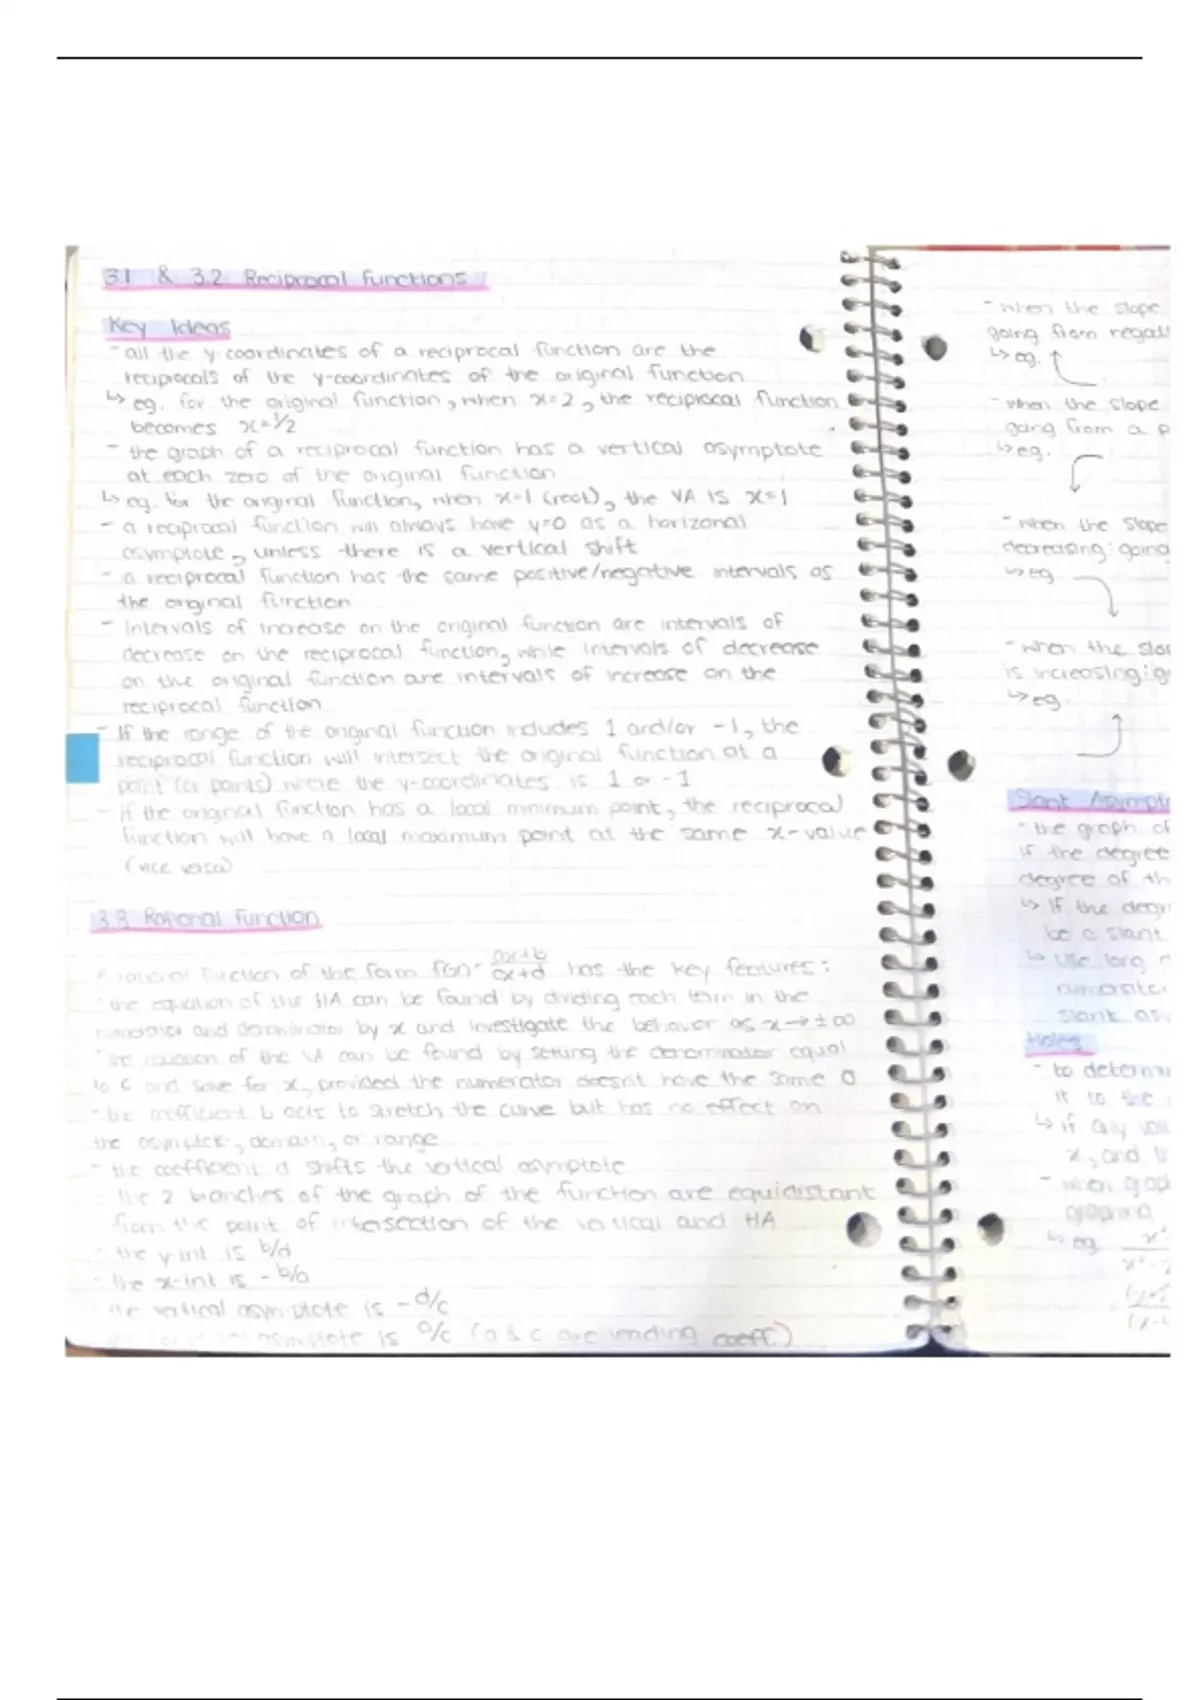 3.1 & 3.2 Reciprocal Functions
Key Ideas
- all the y-coordinates of a reciprocal function are the
reciprocals of the y-coordinates of the original function
↳ eg. for the original function, when x=2, the reciprocal function
becomes x=1/2
- the graph of a reciprocal function has a vertical asymptote
at each zero of the original function
↳ eg. for the original function, when x=1 (root), the VA is x=1
- a reciprocal function will always have y=0 as a horizonal
asymptote, unless there is a vertical shift
- a reciprocal function has the same positive/negative intervals as
the original function
- Intervals of increase on the original function are intervals of
decrease on the reciprocal function, while intervals of decrease
on the original function are intervals of increase on the
reciprocal function
- If the range of the original function includes 1 and/or -1, the
reciprocal function will intersect the original function at a
point (or points) where the y-coordinates is 1 or -1
- if the original function has a local minimum point, the reciprocal
function will have a local maximum point at the same x-value
(vice versa)
3.3 Rational Function
A rational function of the form f(x)= ax+b/cx+d has the key features:
- the equation of the HA can be found by dividing each term in the
numerator and denominator by x and investigate the behavior as x→±∞
- the equation of the VA can be found by setting the denominator equal
to 0 and solve for x, provided the numerator doesnt have the same 0
- the coefficient b acts to stretch the curve but has no effect on
the asymptote, domain, or range
- the coefficient d shifts the vertical asymptote
- the 2 branches of the graph of the function are equidistant
from the point of intersection of the vertical and HA
- the y-int is b/d
- the x-int is -b/a
the vertical asymptote is -d/c
asymptote is a/c (a & c are leading coeff.)
- when the slope
going from negati
↳ eg.
- when the slope
going from a p
↳ eg.
- when the slope
decreasing: going
↳ eg.
- when the slo
is increasing: g
↳ eg.
Slant Asympt
- the graph of
if the degree
degree of th
↳ if the degr
be a slant
↳ use long
numerator
slant asy
Holes
- to determi
it to the
↳ if any val
x, and
- when grap
graphing
↳ eg.